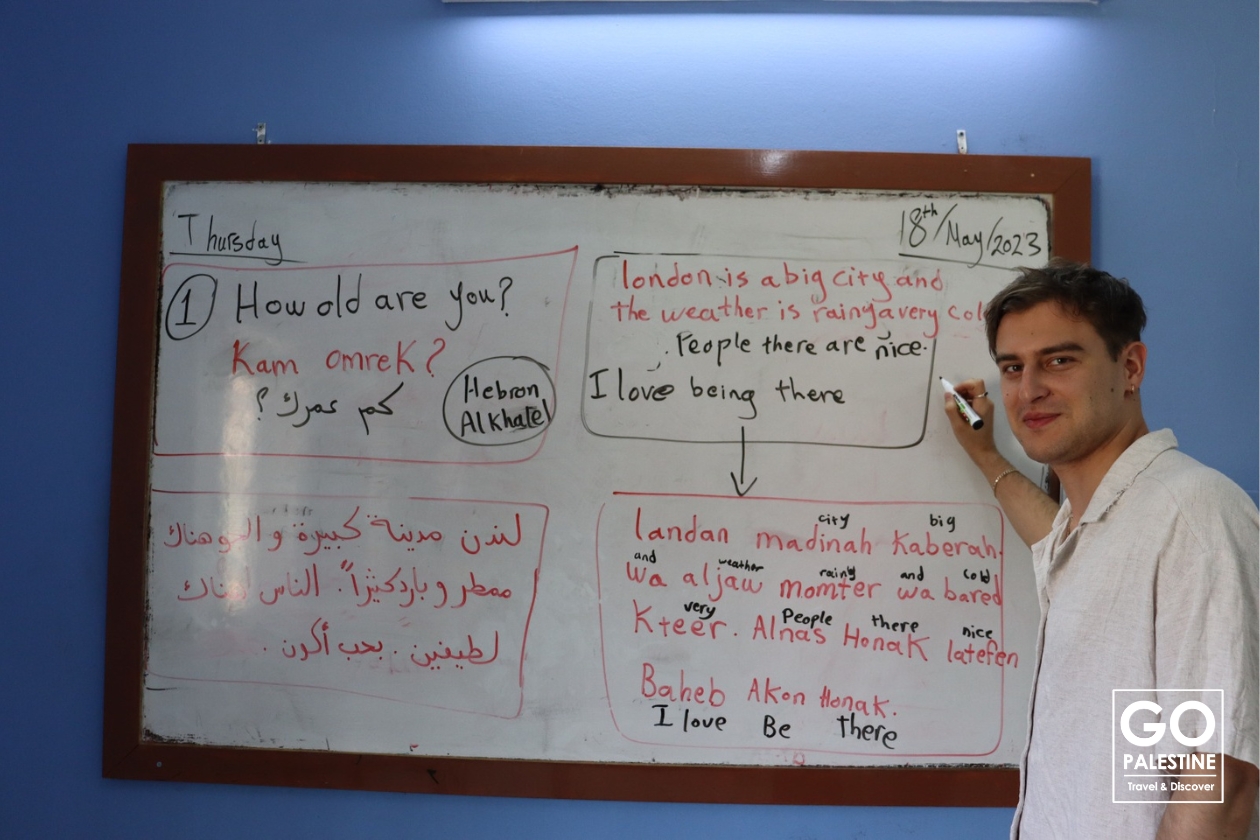 Thursday
18th/May/2023
1 How old are you?
Kam omrek?
كم عمرك ؟
Hebron
Alkhalel
london is a big city and
the weather is rainy a very col
People there are nice.
I love being there
لندن مدينة كبيرة و الجو هناك
ممطر و بارد كثيراً. الناس هناك
لطيفين . بحب أكون .
city big
landan madinah Kaberah.
and weather rainy and cold
wa aljaw momter wa bared
very People there nice
Kteer. Alnas Honak latefen
Baheb Akon Honak.
I love Be there
GO
PALESTINE
Travel & Discover